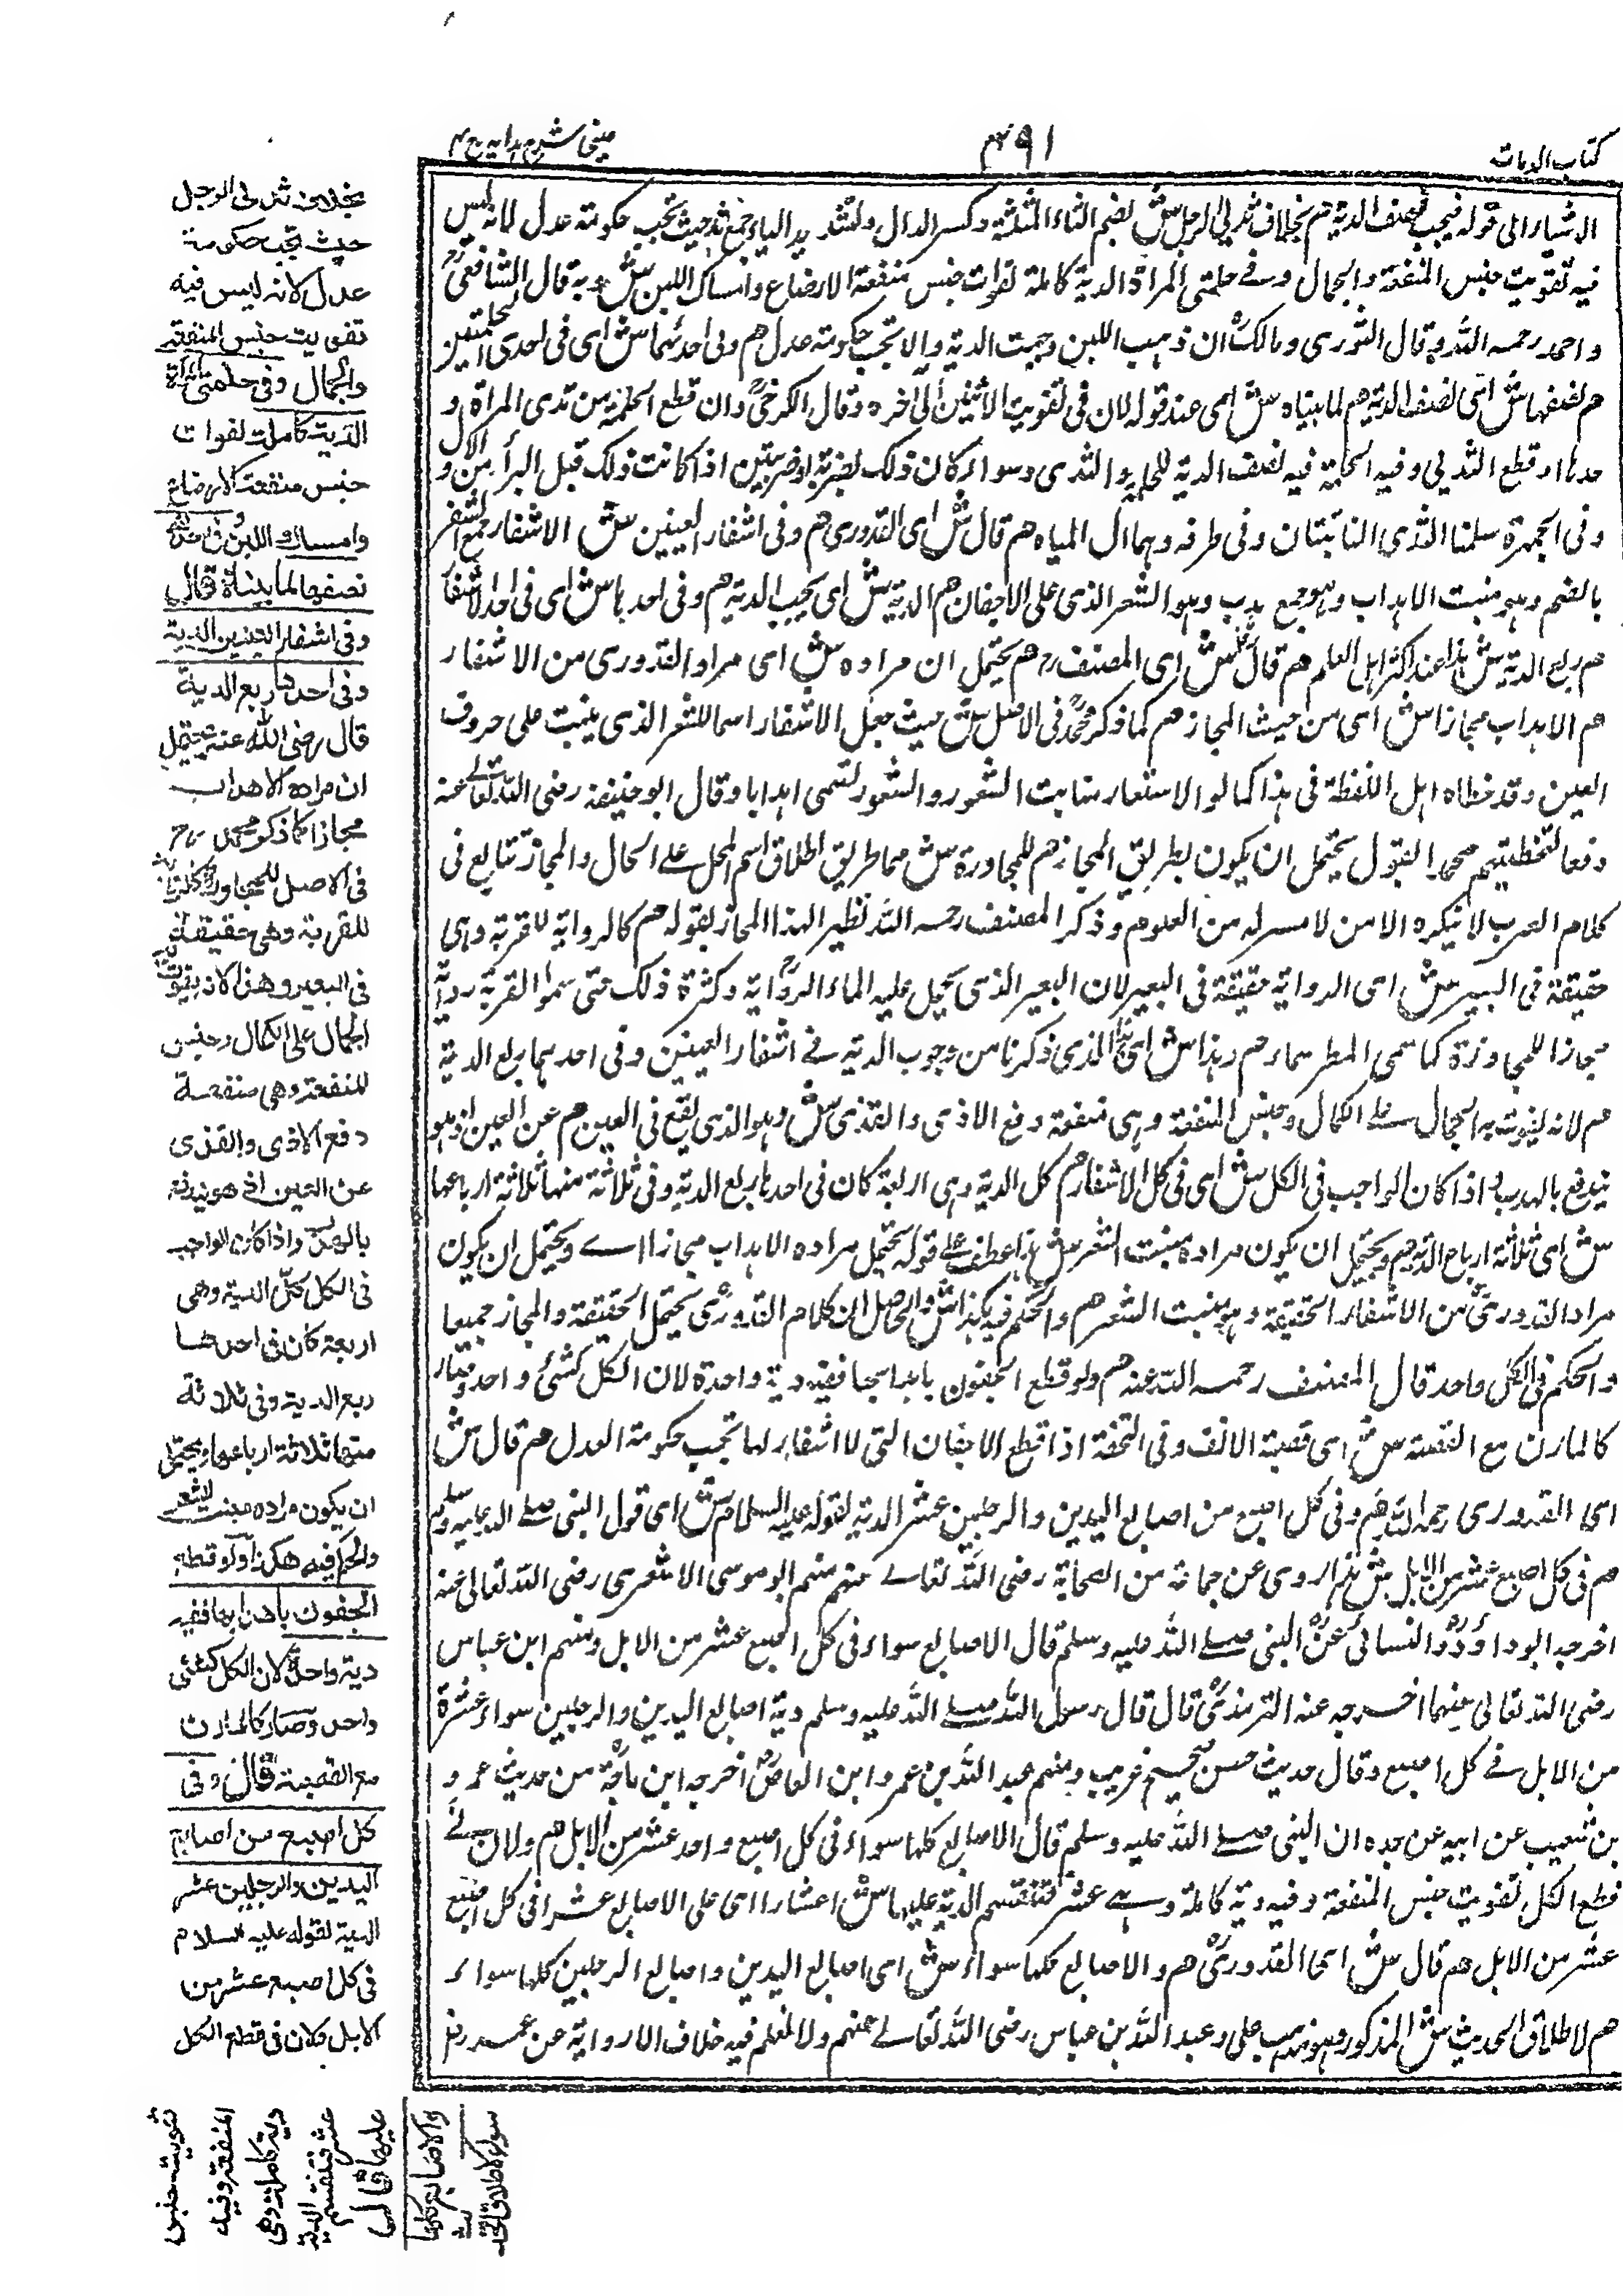 كتاب الديات
٤٩١
عينى شرح هدايه ج ٤
الاشياء الى قوله فيجب نصف الدية هم بخلاف ثديى الرجل ش بضم الثاء المثلثة وكسر الدال وتشديد الياء جمع ثد حيث تجب حكومة عدل لانه ليس
فيه تفويت جنس المنفعة والجمال وفى حلمتى المرأة الدية كاملة لفوات جنس منفعة الارضاع وامساك اللبن ش وبه قال الشافعى
واحمد رحمه الله وقال الثورى ومالك ان ذهب اللبن وجبت الدية والا تجب حكومة عدل هم وفى احدئهما ش اى فى احدى الحلمتين
هم نصفها ش اى نصف الدية هم لما بيناه ش اى عند قوله لان فى تفويت الاثنين الى اخره وقال الكرخى وان قطع الحلمة من ثدى المرأة او
حدها او قطع الثدى وفيه الحلمة فيه نصف الدية للحلمة والثدى وسواء كان ذلك بضربة او ضربتين اذا كانت ذلك قبل البرأ من الاول
وفى الجمهرة سلمنا الثدى الناتئتان وفى طرفه وهما ال المياه هم قال ش اى القدورى هم وفى اشفار العينين ش الاشفار جمع الشفر
بالضم وهو منبت الاهداب وهو جمع هدب وهو الشعر الذى على الاجفان هم الدية ش اى يجب الدية هم وفى احدها ش اى فى احد الاشفار
هم ربع الدية ش هذا عند اكثر اهل العلم هم قال ش اى المصنف رح هم يحتمل ان مراده ش اى مراد القدورى من الاشفار
هم الاهداب مجازا ش اى من حيث المجاز هم كما ذكر محمد فى الاصل ش حيث جعل الاشفار اسما للشعر الذى ينبت على حروف
العين وقد خطاه اهل اللفظة فى هذا كما لو الاستعار منابت الشعور والشعور تسمى اهدابا وقال ابو حنيفة رضى الله تعالى عنه
دفعا لتخطيتهم محمد القول يحتمل ان يكون بطريق المجاز هم للمجاورة ش مما طريق اطلاق اسم المحل على الحال والمجاز تتابع فى
كلام العرب لا ينكره الا من لا مسر له من العلوم وذكر المصنف رحمه الله نظير الهذا المجاز بقوله هم كالرواية للقربة وهى
حقيقة فى البعير ش اى الرواية حقيقة فى البعير لان البعير الذى يحمل عليه الماء الرواية وكثرة ذلك حتى سموا القربة رواية
مجازا للمجاورة كما سمى المطر سماء هم وهذا ش اى هذا الذى ذكرنا من وجوب الدية فى اشفار العينين وفى احدهما ربع الدية
هم لانه يفوت به الجمال على الكمال وجنس المنفعة وهى منفعة دفع الاذى والقذى ش وهو الذى يقع فى العين هم عن العين اذ هو
يندفع بالهدب واذا كان الواجب فى الكل ش اى فى كل الاشفار هم كل الدية وهى اربعة كان فى احدها ربع الدية وفى ثلاثة منها ثلاثة ارباعها
ش اى ثلاثة ارباع الدية هم ويحتمل ان يكون مراده منبت الشعر ش هذا عطف على قوله يحتمل مراده الاهداب مجازا اى ويحتمل ان يكون
مراد القدورى من الاشفار الحقيقة وهو منبت الشعر هم والحكم فيه هكذا ش والحاصل ان كلام القدورى يحتمل الحقيقة والمجاز جميعا
والحكم فى الكل واحد قال المصنف رحمه الله عنه هم ولو قطع الجفون باهدابها ففيه دية واحدة لان الكل كشئ واحد وصار
كالمارن مع القصبة ش اى قصبة الانف وفى التحفة اذا قطع الاجفان التى لا اشفار لها تجب حكومة العدل هم قال ش
اى القدورى رحمه الله هم وفى كل اصبع من اصابع اليدين والرجلين عشر الدية لقوله عليه السلام ش اى قول النبى صلى الله عليه وسلم
هم فى كل اصبع عشر من الابل ش هذا روى عن جماعة من الصحابة رضى الله تعالى عنهم منهم ابو موسى الاشعرى رضى الله تعالى عنه
اخرجه ابو داود والنسائى عن النبى صلى الله عليه وسلم قال الاصابع سواء فى كل اصبع عشر من الابل ومنهم ابن عباس
رضى الله تعالى عنهما اخرجه عنه الترمذى قال قال رسول الله صلى الله عليه وسلم دية اصابع اليدين والرجلين سواء عشرة
من الابل فى كل اصبع وقال حديث حسن صحيح غريب ومنهم عبد الله بن عمرو ابن العاص اخرجه ابن ماجة من حديث عمرو
بن شعيب عن ابيه عن جده ان النبى صلى الله عليه وسلم قال الاصابع كلها سواء فى كل اصبع واحد عشر من الابل هم ولان فى
قطع الكل تفويت جنس المنفعة وفيه دية كاملة وهى عشر فتنقسم الدية عليها ش اعشارا اى على الاصابع عشرا فى كل اصبع
عشر من الابل هم قال ش اى القدورى هم والاصابع كلها سواء ش اى اصابع اليدين واصابع الرجلين كلها سواء
هم لاطلاق الحديث ش المذكور وهو مذهب على وعبد الله بن عباس رضى الله تعالى عنهم ولا نعلم فيه خلاف الا رواية عن عمر رض
بخلاف ثديى الرجل
حيث تجب حكومة
عدل لانه ليس فيه
تفويت جنس المنفعة
والجمال وفى حلمتى المرأة
الدية كاملة لفوات
جنس منفعة الارضاع
وامساك اللبن وفى احدهما
نصفها لما بيناه قال
وفى اشفار العينين الدية
وفى احدها ربع الدية
قال رضى الله عنه يحتمل
ان مراده الاهداب
مجازا كما ذكر محمد رح
فى الاصل للمجاورة كالرواية
للقربة وهى حقيقة
فى البعير وهذا لانه يفوت
الجمال على الكمال وجنس
المنفعة وهى منفعة
دفع الاذى والقذى
عن العين اذ هو يندفع
بالهدب واذا كان الواجب
فى الكل كل الدية وهى
اربعة كان فى احدها
ربع الدية وفى ثلاثة
منها ثلاثة ارباعها ويحتمل
ان يكون مراده منبت الشعر
والحكم فيه هكذا ولو قطع
الجفون باهدابها ففيه
دية واحدة لان الكل كشئ
واحد وصار كالمارن
مع القصبة قال وفى
كل اصبع من اصابع
اليدين والرجلين عشر
الدية لقوله عليه السلام
فى كل اصبع عشر من
الابل ولان فى قطع الكل
تفويت جنس
المنفعة وفيه
دية كاملة وهى
عشر فتنقسم الدية
عليها قال
والاصابع كلها
سواء لاطلاق الحديث